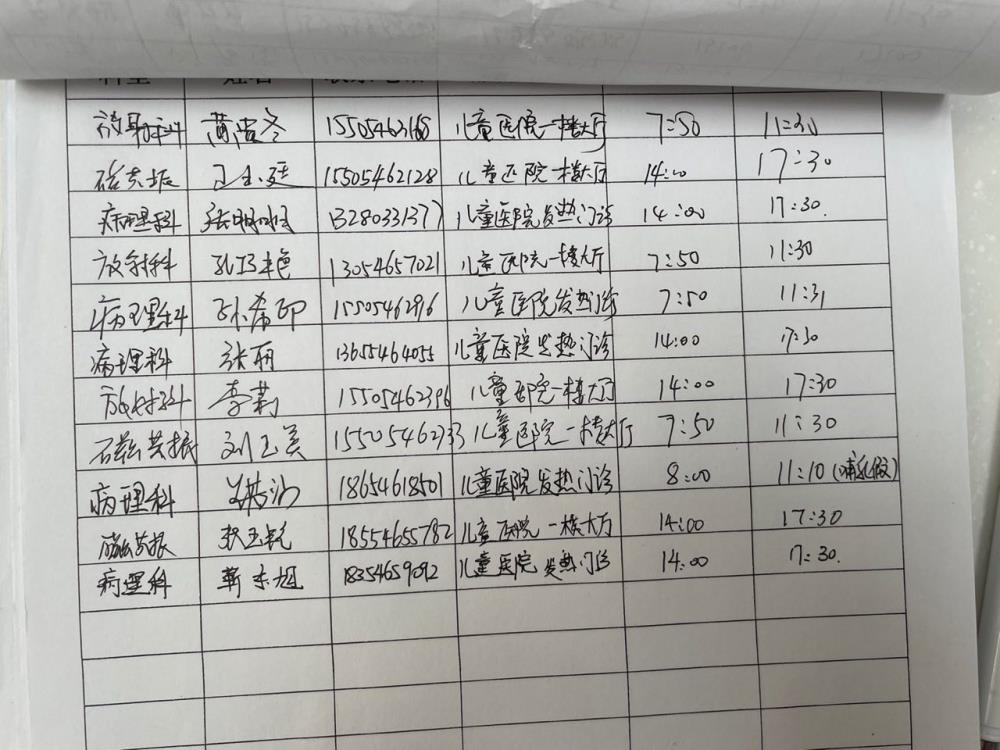 科室 姓名 联系电话
放射科 黄尚冬 15505463168 儿童医院一楼大厅 7:50 11:30
磁共振 15505462128 儿童医院一楼大厅 14:00 17:30
病理科 张明 13280331377 儿童医院发热门诊 14:00 17:30.
放射科 孔巧艳 13054657021 儿童医院一楼大厅 7:50 11:30
病理科 孙希印 1550546296 儿童医院发热门诊 7:50 11:31
病理科 张丽 13655464055 儿童医院发热门诊 14:00 17:30
放射科 李莉 15505462396 儿童医院一楼大厅 14:00 17:30
磁共振 刘玉美 15505462733 儿童医院一楼大厅 7:50 11:30
病理科 18654618501 儿童医院发热门诊 8:00 11:10(哺乳假)
磁共振 张玉锐 18554655782 儿童医院一楼大厅 14:00 17:30
病理科 靳东旭 18354659092 儿童医院发热门诊 14:00 17:30.